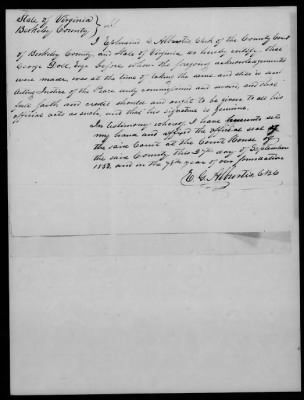 State of Virginia }
Berkeley County } Sct
I Ephraim G. Alburtis Clerk of the County Court
of Berkeley County and State of Virginia do hereby certify that
George Doll, Esqr before whom the foregoing acknowledgements
were made, was at the time of taking the same and still is an
Acting Justice of the Peace duly commissioned and sworn, and that
full faith and credit should and ought to be given to all his
official acts as such, and that his signature is genuine.
In testimony whereof I have hereunto set
my hand and affixed the official seal of
the said Court at the Court House of
the said County this 27th day of September
1853 and in the 78th year of our foundation
E. G. Alburtis, Clk